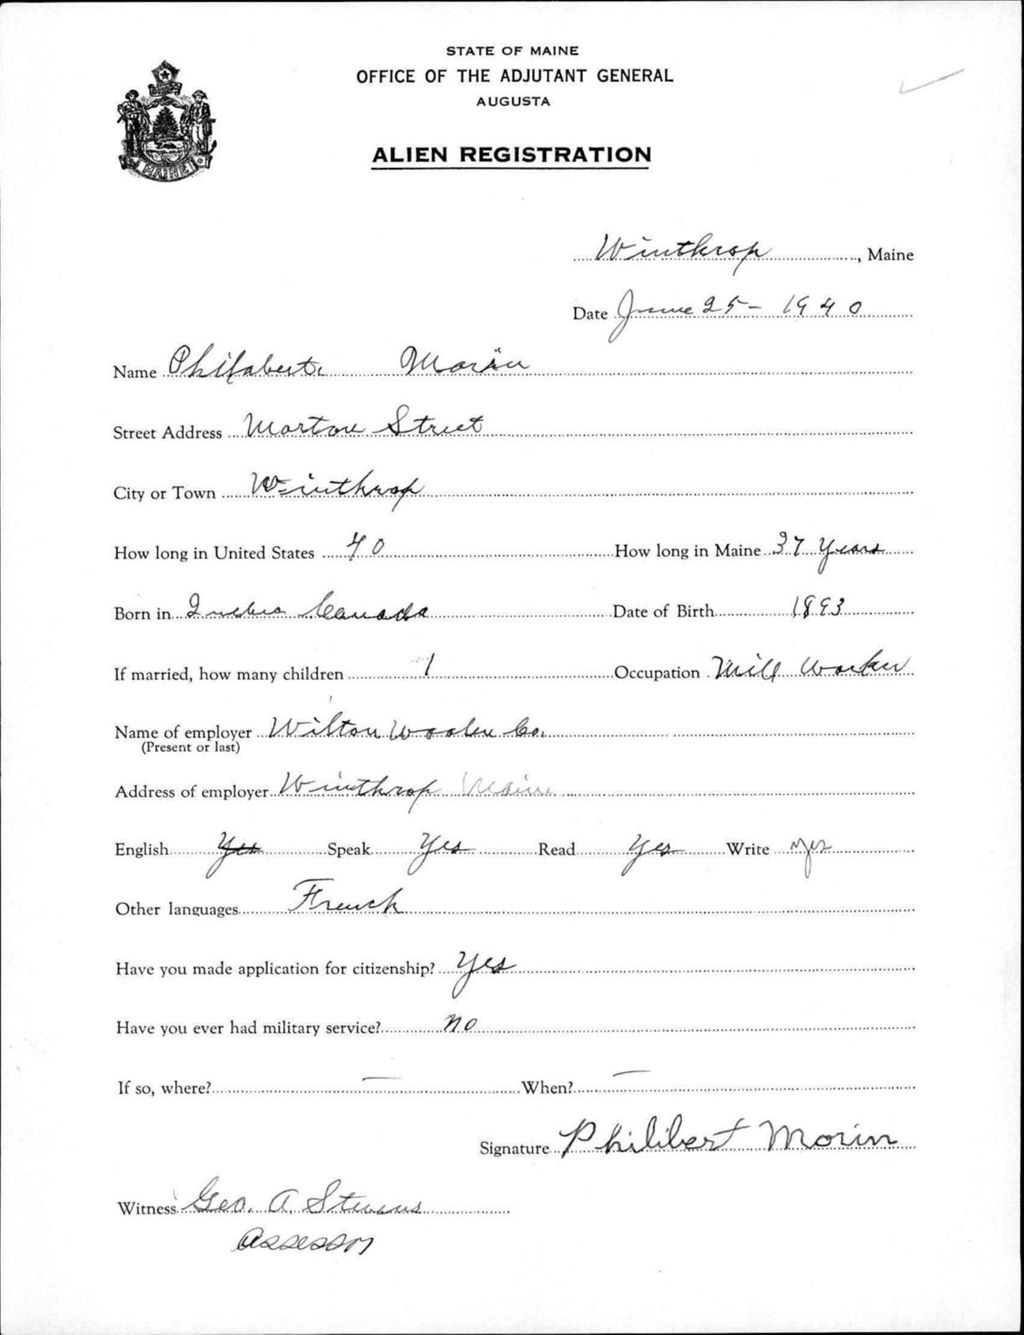 STATE OF MAINE
OFFICE OF THE ADJUTANT GENERAL
AUGUSTA
ALIEN REGISTRATION
MAINE
Winthrop, Maine
Date June 25 - 1940
Name Philabert. Morin
Street Address Morton Street
City or Town Winthrop
How long in United States 40 How long in Maine 37 Years
Born in Quebec Canada Date of Birth 1893
If married, how many children 1 Occupation Mill Worker
Name of employer Wilton Woolen Co.
(Present or last)
Address of employer Winthrop Maine
English Yes Speak Yes Read Yes Write yes
Other languages French
Have you made application for citizenship? Yes
Have you ever had military service? no
If so, where? — When? —
Signature Philibert Morin
Witness Geo. A. Stevens
Assessor